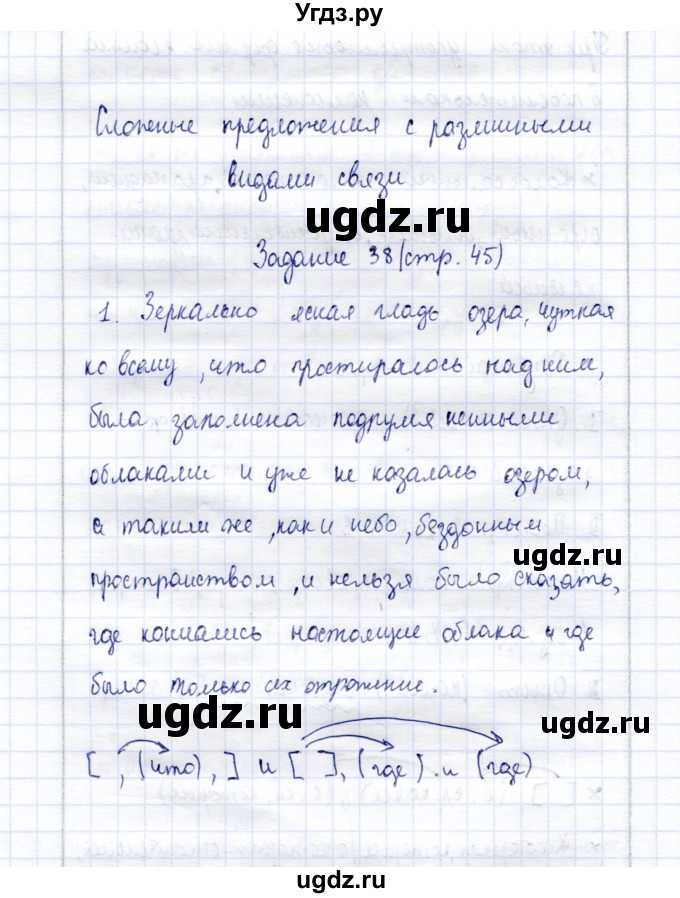 Угдз.ру
Сложные предложения с различными
видами связи
ugdz.ru
Задание 38 (стр. 45)
1. Зеркально ясная гладь озера, чуткая
ко всему, что простиралось над ним,
была заполнена подрумяненными
облаками и уже не казалась озером,
а таким же, как и небо, бездонным
ugdz.ru
пространством, и нельзя было сказать,
где кончались настоящие облака и где
было только их отражение.
ugdz.ru
ugdz.ru
[ , (что), ] и [ ], (где) и (где)
ugdz.ru